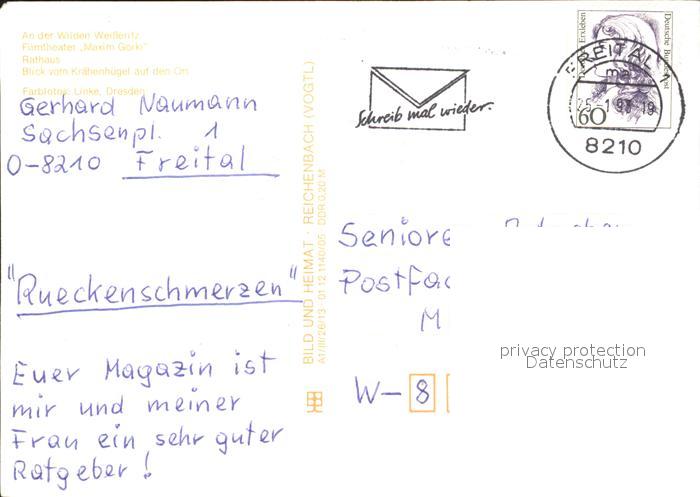 An der Wilden Weißeritz
Filmtheater „Maxim Gorki“
Rathaus
Blick vom Krähenhügel auf den Ort
Farbfotos: Linke, Dresden
Gerhard Naumann
Sachsenpl. 1
O-8210 Freital
"Rueckenschmerzen"
Euer Magazin ist
mir und meiner
Frau ein sehr guter
Ratgeber!
BILD UND HEIMAT · REICHENBACH (VOGTL)
A1/III/26/13 · 01 12 1140/05 DDR 0,20 M
Schreib mal wieder.
Erxleben
Deutsche Bundespost
60
FREITAL
8210
Seniore
Postfac
M
W-8
privacy protection
Datenschutz